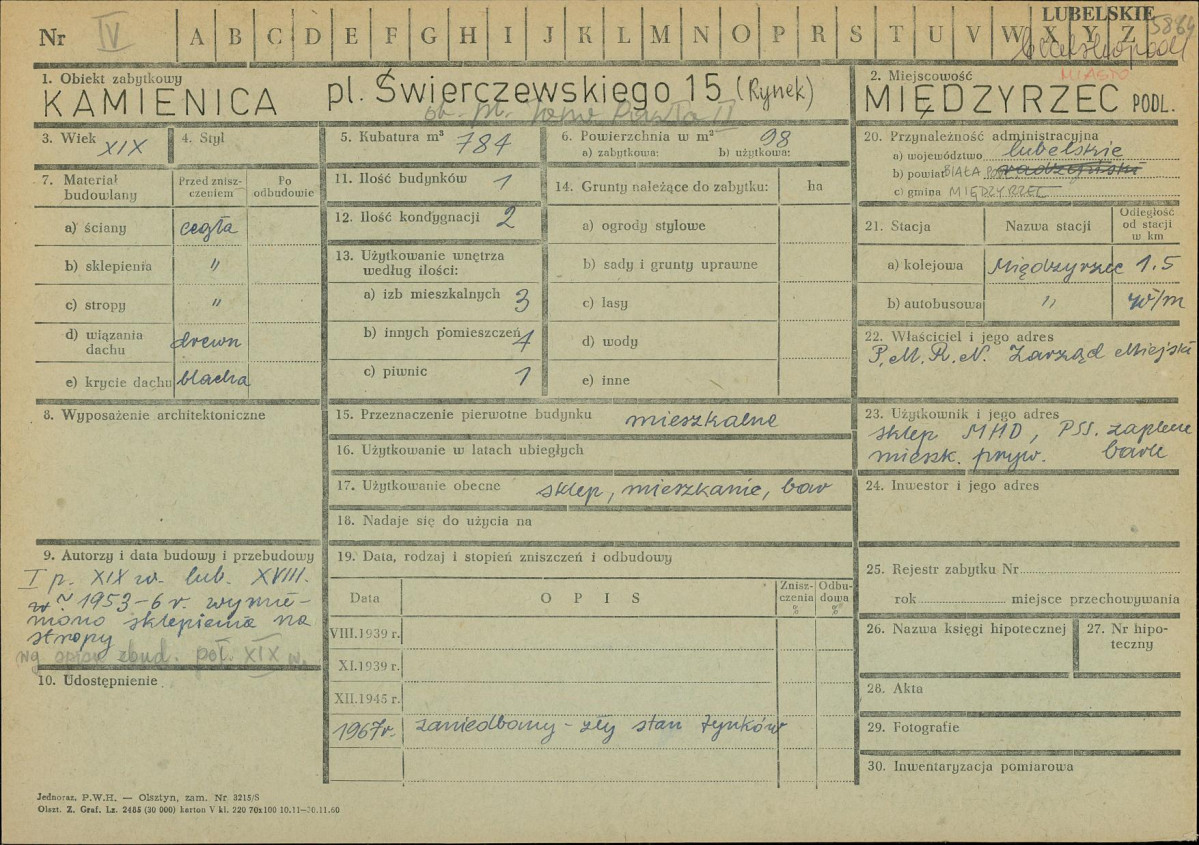 Nr IV A B C D E F G H I J K L M N O P R S T U V W X Y Z
LUBELSKIE
bialskopodl
MIASTO
1. Obiekt zabytkowy
KAMIENICA pl. Świerczewskiego 15 (Rynek)
ob. pl. Jana Pawła II
2. Miejscowość
MIĘDZYRZEC PODL.
3. Wiek XIX
4. Styl
5. Kubatura m³ 784
6. Powierzchnia w m² 98
a) zabytkowa: b) użytkowa:
7. Materiał budowlany
Przed zniszczeniem
Po odbudowie
a) ściany cegła
b) sklepienia "
c) stropy "
d) wiązania dachu drewn
e) krycie dachu blacha
8. Wyposażenie architektoniczne
9. Autorzy i data budowy i przebudowy
I p. XIX w. lub. XVIII.
w? 1953-6 r. wymie-
niono sklepienia na
stropy
wg opisu zbud. poł. XIX w.
10. Udostępnienie
11. Ilość budynków 1
12. Ilość kondygnacji 2
13. Użytkowanie wnętrza
według ilości:
a) izb mieszkalnych 3
b) innych pomieszczeń 4
c) piwnic 1
14. Grunty należące do zabytku: ha
a) ogrody stylowe
b) sady i grunty uprawne
c) lasy
d) wody
e) inne
15. Przeznaczenie pierwotne budynku mieszkalne
16. Użytkowanie w latach ubiegłych
17. Użytkowanie obecne sklep, mieszkanie, bar
18. Nadaje się do użycia na
19. Data, rodzaj i stopień zniszczeń i odbudowy
Data OPIS Zniszczenia % Odbudowa %
VIII.1939 r.
XI.1939 r.
XII.1945 r.
1967r. zaniedbany - zły stan tynków
20. Przynależność administracyjna
a) województwo lubelskie
b) powiat BIAŁA POD. radzyński
c) gmina MIĘDZYRZEC
21. Stacja Nazwa stacji Odległość od stacji w km
a) kolejowa Międzyrzec 1.5
b) autobusowa " w/m
22. Właściciel i jego adres
P.M.R.N. Zarząd Miejski
23. Użytkownik i jego adres
sklep MHD, PSS. zaplecze
mieszk. pryw. baru
24. Inwestor i jego adres
25. Rejestr zabytku Nr
rok miejsce przechowywania
26. Nazwa księgi hipotecznej
27. Nr hipo-
teczny
28. Akta
29. Fotografie
30. Inwentaryzacja pomiarowa
Jednoraz. P.W.H. — Olsztyn, zam. Nr 3215/S
Olszt. Z. Graf. Lz. 2485 (30 000) karton V kl. 220 70x100 10.11—30.11.60